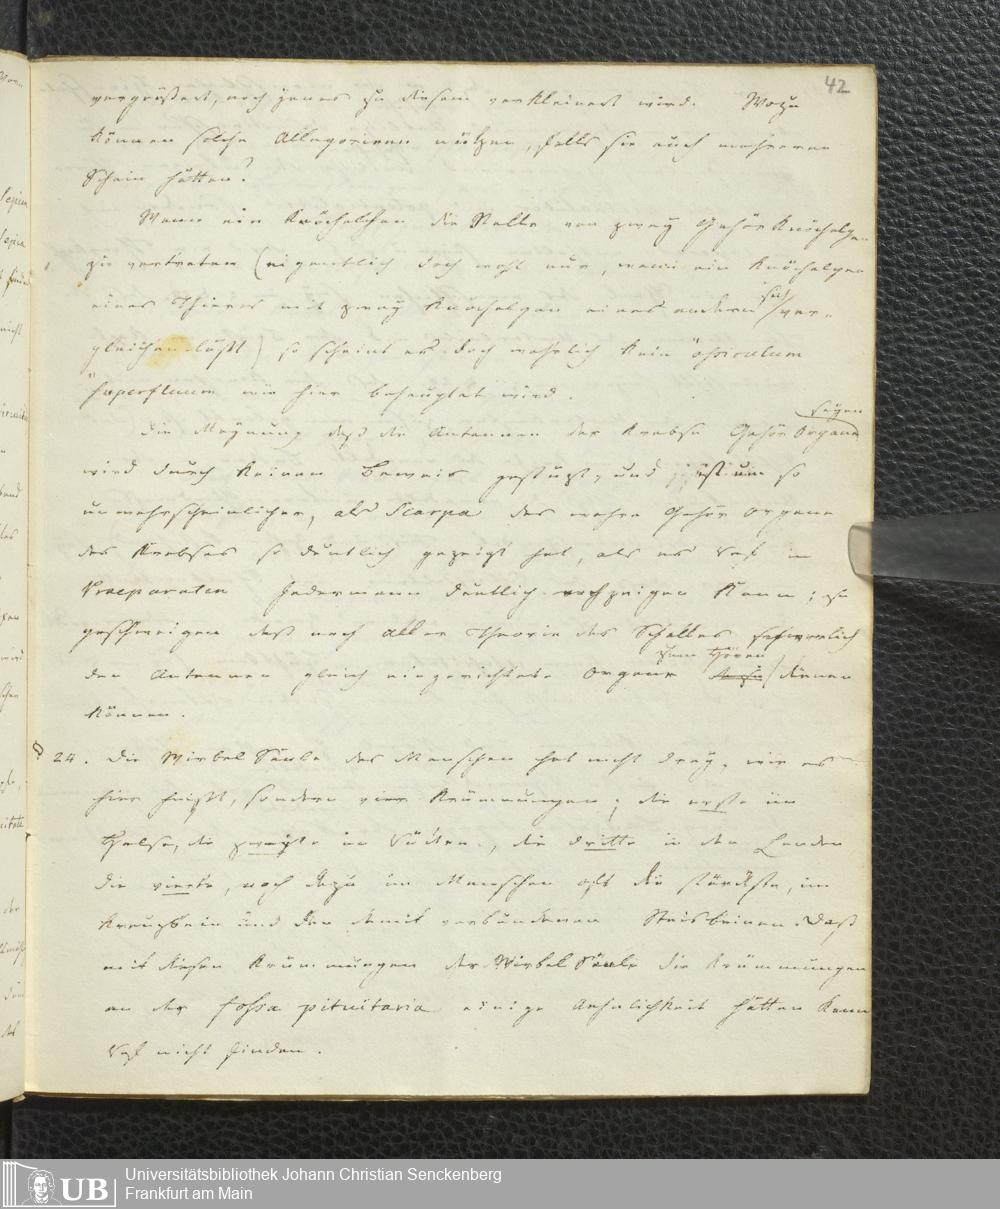 42
vergrößert, noch jenes zu diesem verkleinert wird. Wozu
können solche Allegorieen nützen, falls sie auch mehreren
Schein hätten?
Wenn ein Knöchelchen die Stelle von zwey Gehör Knöchelgen
zu vertreten (eigentlich doch wohl nur, wenn ein Knöchelgen
eines Thieres mit zwey Knöchelgen eines andern sich ver-
gleichen läßt) so scheint es doch wahrlich kein ossiculum
superfluum wie hier behauptet wird.
Die Meynung daß die Antennen der Krebse Gehör Organe seyen
wird durch keinen Beweis gestüzt, und ist um so
unwahrscheinlicher, als Scarpa das wahre Gehör Organ
des Krebses so deutlich gezeigt hat, als es Vf. in
Praeparaten Jedermann deutlich vorzeigen kann; zu
geschweigen daß nach aller Theorie des Schalles schwerlich
den Antennen gleich eingerichtete Organe zum Hören dienen
können.
§ 24. Die Wirbel Säule des Menschen hat nicht drey, wie es
hier heißt, sondern vier Krümmungen; die erste im
Halse, die zweyte im Rücken, die dritte in den Lenden
die vierte, noch dazu im Menschen oft die stärkste, im
Kreuzbein und den damit verbundenen Steisbeinen. Daß
mit diesen Krümmungen der Wirbel Säule die Krümmungen
an der fossa pituitaria einige Aehnlichkeit hätten kann
Vf. nicht finden.
UB
Universitätsbibliothek Johann Christian Senckenberg
Frankfurt am Main